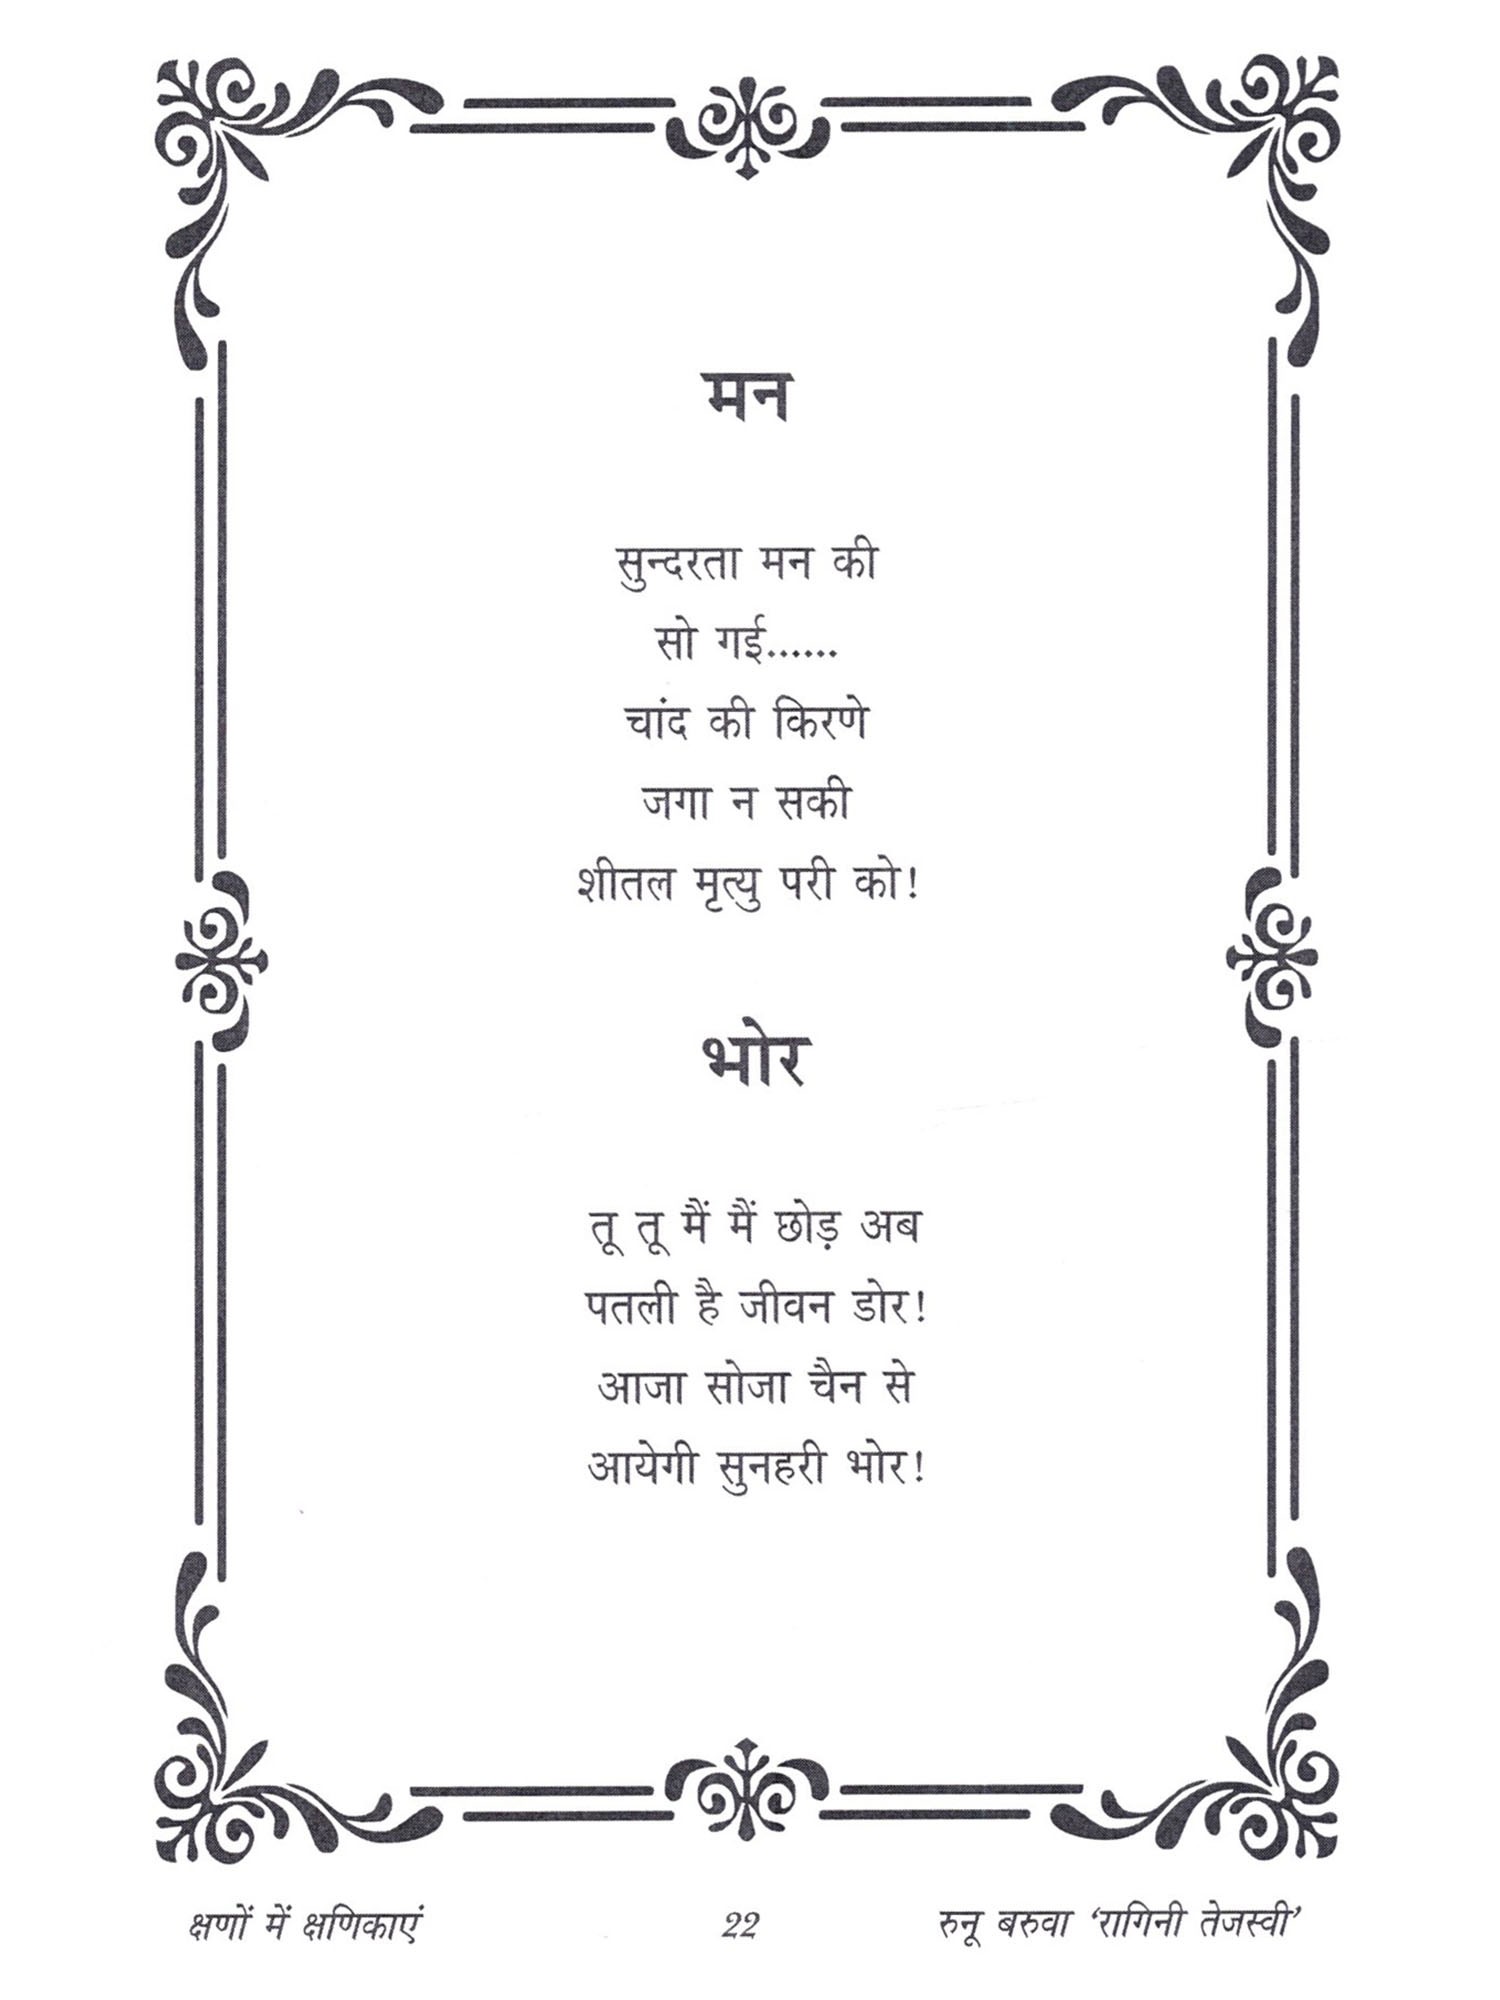 मन
सुन्दरता मन की
सो गई......
चांद की किरणे
जगा न सकी
शीतल मृत्यु परी को!
भोर
तू तू मैं मैं छोड़ अब
पतली है जीवन डोर!
आजा सोजा चैन से
आयेगी सुनहरी भोर!
क्षणों में क्षणिकाएं 22 रुनू बरुवा ‘रागिनी तेजस्वी’